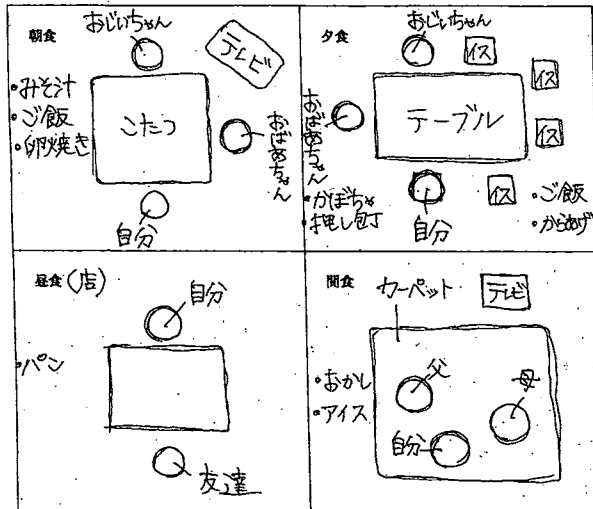 朝食
おじいちゃん
テレビ
・みそ汁
・ご飯
・卵焼き
こたつ
おばあちゃん
自分
夕食
おじいちゃん
イス
イス
イス
イス
テーブル
おばあちゃん
自分
・かぼちゃ
押し包丁
・ご飯
・からあげ
昼食(店)
自分
・パン
友達
間食
カーペット
テレビ
・おかし
・アイス
父
母
自分